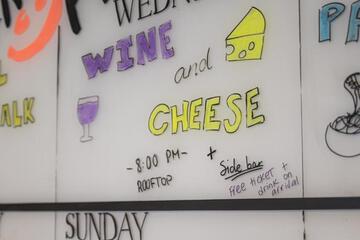 WEDN
WINE
and
CHEESE
-8:00 PM-
ROOFTOP
+
Side bar
Free ticket +
drink on
arrival
ALK
SUNDAY